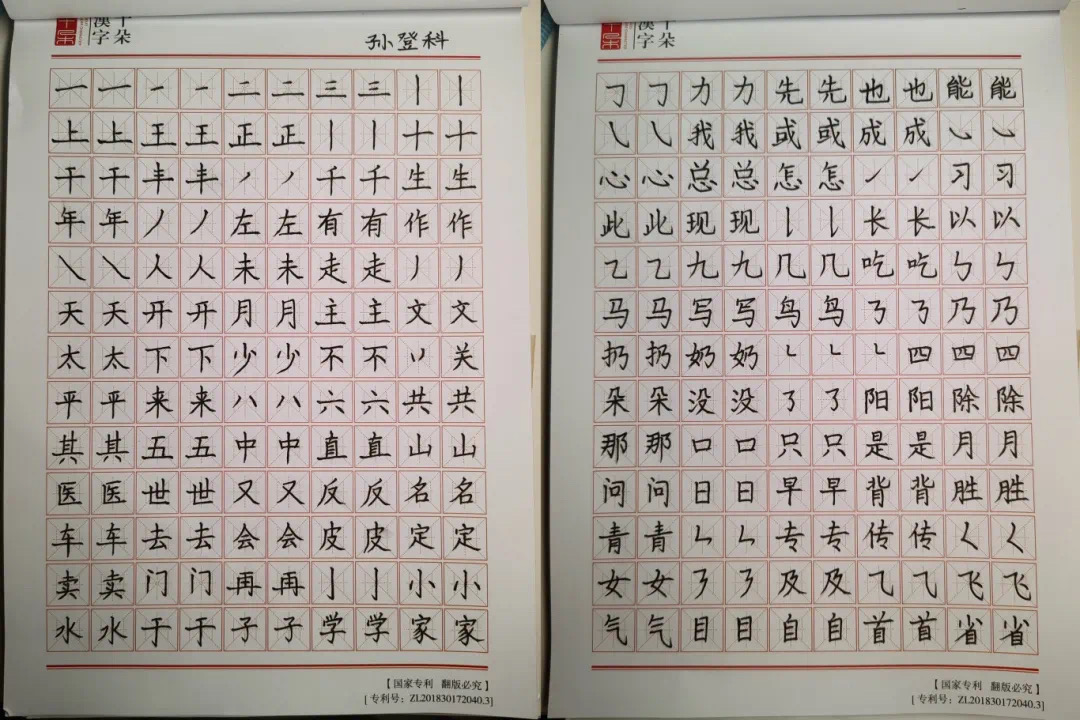 千朵
漢字
孙登科
一 一 一 一 二 二 三 三 丨 丨
上 上 王 王 正 正 丨 丨 十 十
干 干 丰 丰 ノ ノ 千 千 生 生
年 年 丿 丿 左 左 有 有 作 作
㇏ ㇏ 人 人 未 未 走 走 丿 丿
天 天 开 开 月 月 主 主 文 文
太 太 下 下 少 少 不 不 丷 关
平 平 来 来 八 八 六 六 共 共
其 其 五 五 中 中 直 直 山 山
医 医 世 世 又 又 反 反 名 名
车 车 去 去 会 会 皮 皮 定 定
卖 卖 门 门 再 再 亅 亅 小 小
水 水 于 于 子 子 学 学 家 家
【国家专利 翻版必究】
[专利号：ZL201830172040.3]
千朵
漢字
㇆ ㇆ 力 力 先 先 也 也 能 能
㇂ ㇂ 我 我 或 或 成 成 ㇃ ㇃
心 心 总 总 怎 怎 ㇀ ㇀ 习 习
此 此 现 现 ㇙ ㇙ 长 长 以 以
乙 乙 九 九 几 几 吃 吃 ㇉ ㇉
马 马 写 写 鸟 鸟 ㇋ ㇋ 乃 乃
扔 扔 奶 奶 ㇗ ㇗ ㇗ 四 四 四
朵 朵 没 没 ㇌ ㇌ 阳 阳 除 除
那 那 口 口 只 只 是 是 月 月
问 问 日 日 早 早 背 背 胜 胜
青 青 ㇞ ㇞ 专 专 传 传 ㇛ ㇛
女 女 ㇋ ㇋ 及 及 ⺄ ⺄ 飞 飞
气 气 目 目 自 自 首 首 省 省
【国家专利 翻版必究】
[专利号：ZL201830172040.3]